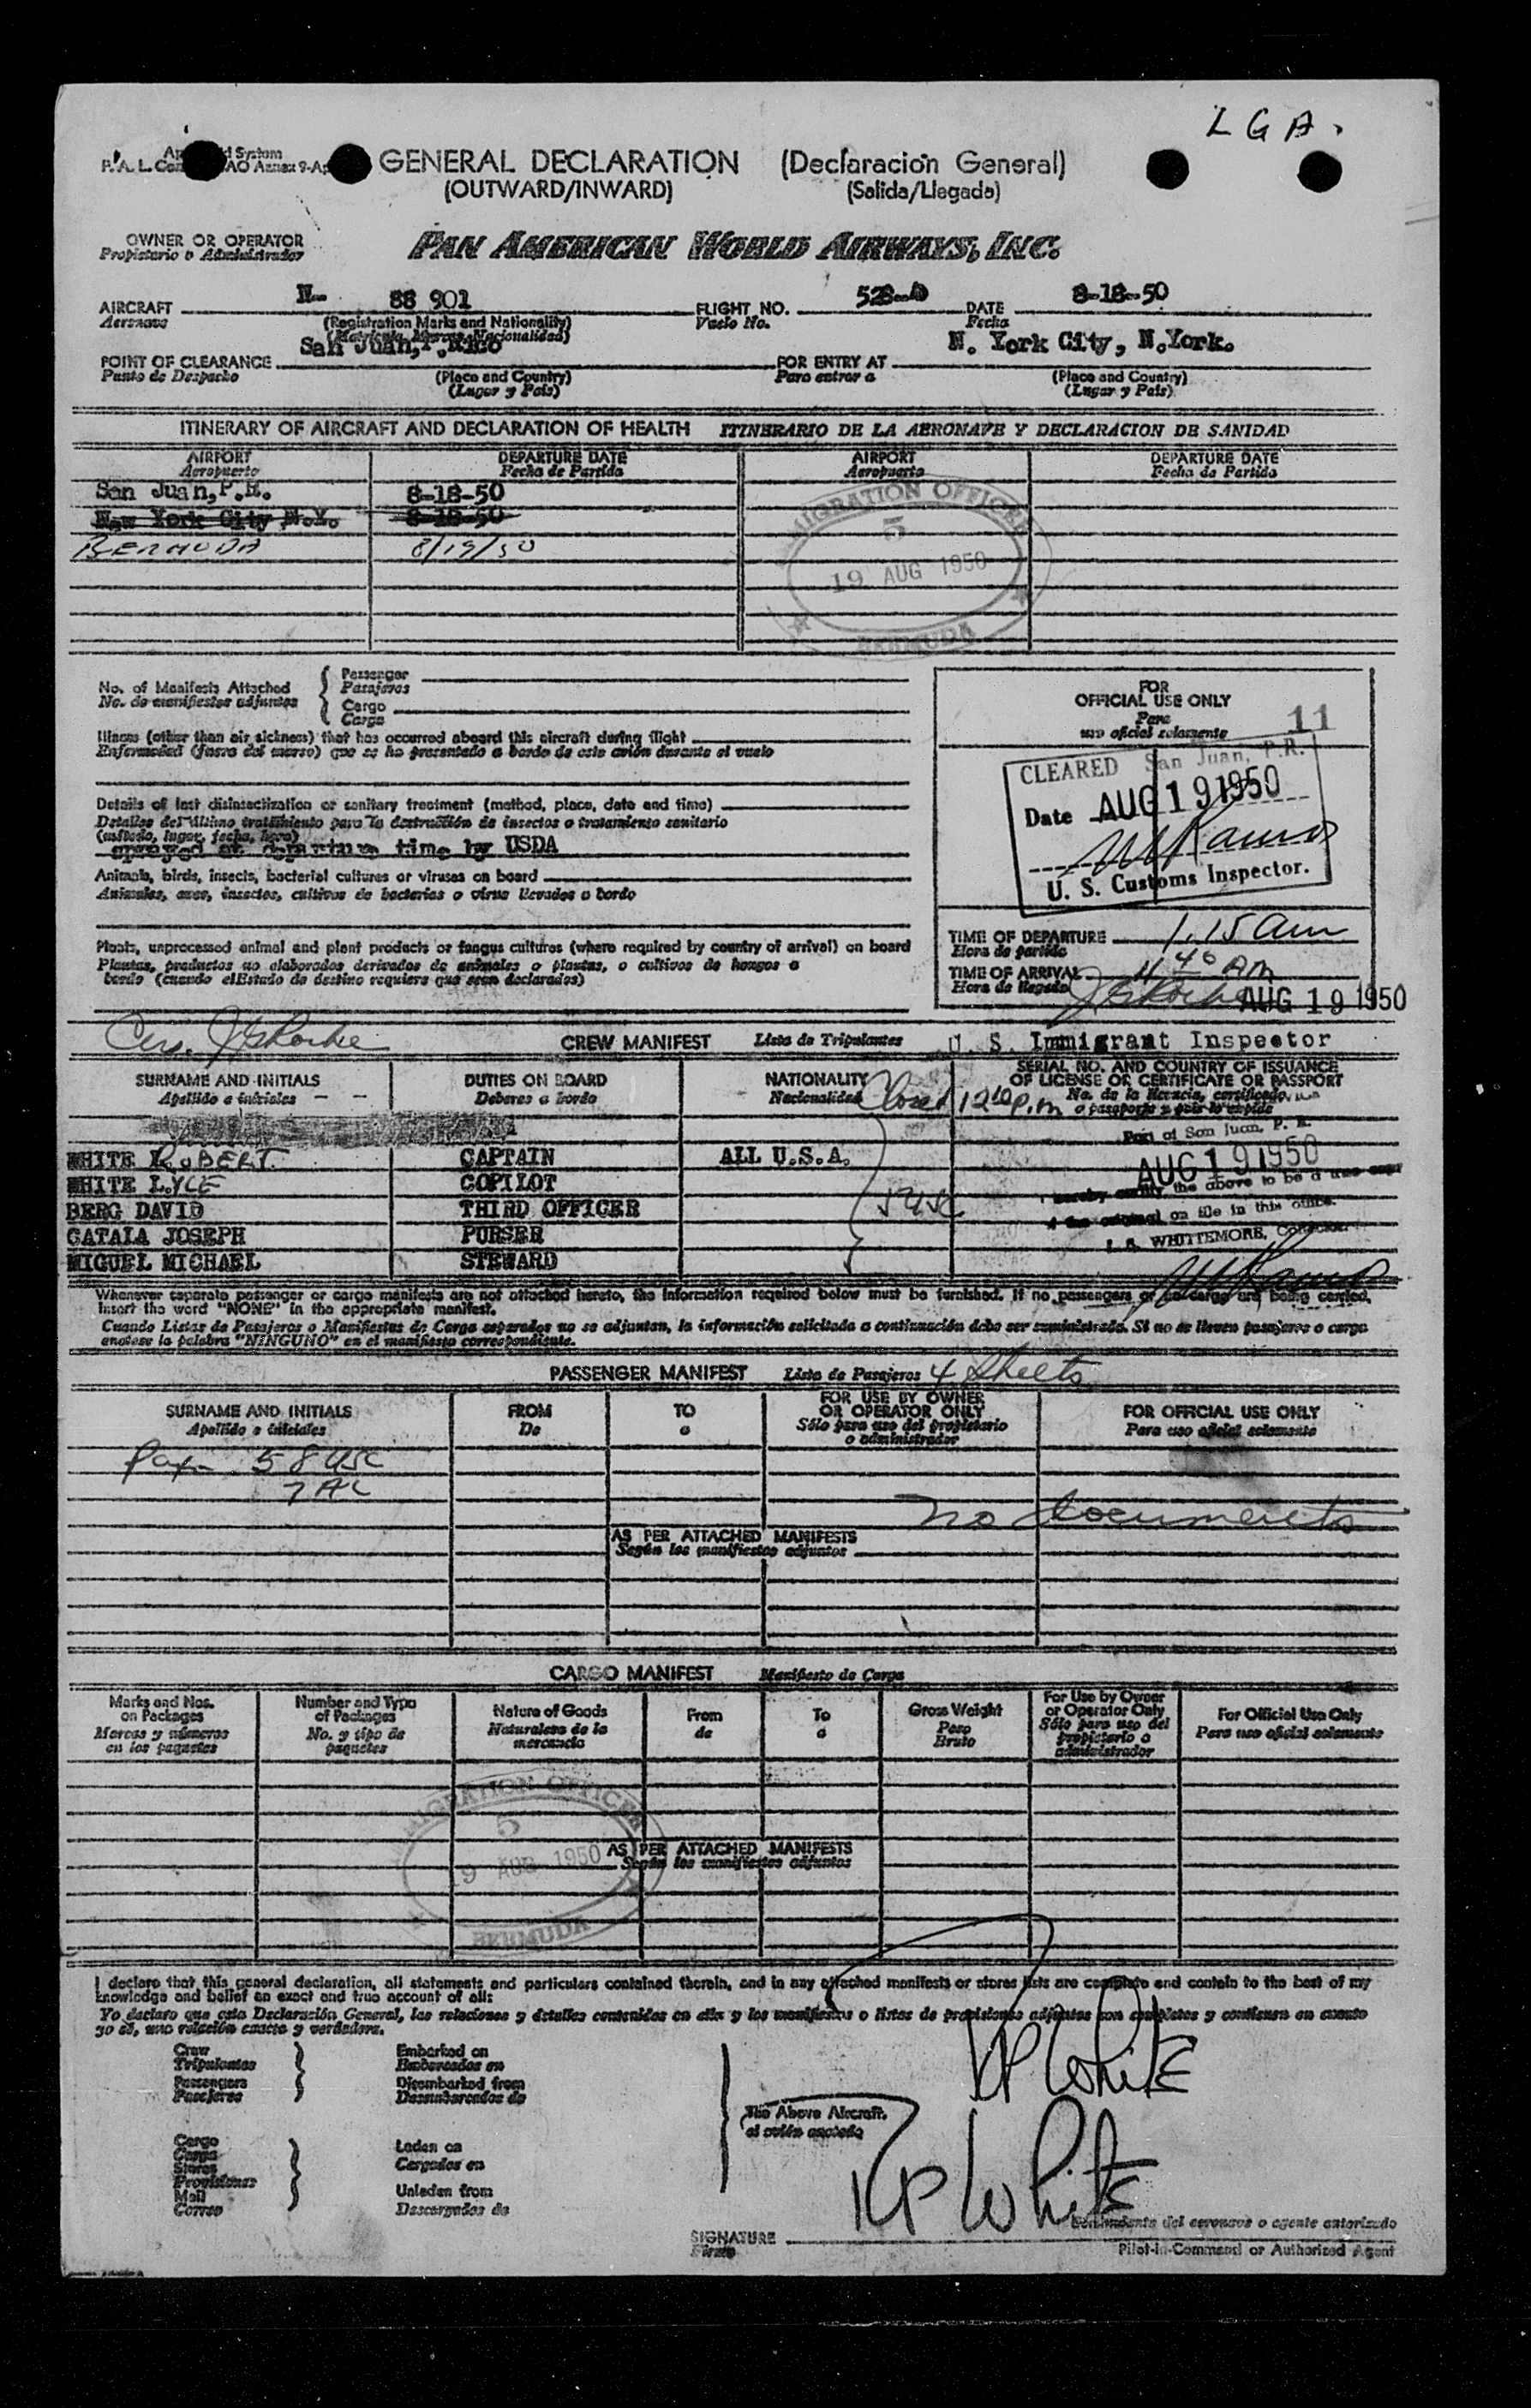 LGA.
GENERAL DECLARATION (Declaración General)
(OUTWARD/INWARD) (Salida/Llegada)
OWNER OR OPERATOR
Propietario o Administrador
PAN AMERICAN WORLD AIRWAYS, INC.
AIRCRAFT N- 88 901 FLIGHT NO. DATE 8-18-50
Aeronave (Registration Marks and Nationality) Vuelo No. Fecha
San Juan, P. Rico N. York City, N.York.
POINT OF CLEARANCE FOR ENTRY AT
Punto de Despacho (Place and Country) Para entrar a (Place and Country)
(Lugar y País) (Lugar y País)
ITINERARY OF AIRCRAFT AND DECLARATION OF HEALTH ITINERARIO DE LA AERONAVE Y DECLARACION DE SANIDAD
AIRPORT DEPARTURE DATE AIRPORT DEPARTURE DATE
Aeropuerto Fecha de Partida Aeropuerto Fecha de Partida
San Juan, P.R. 8-18-50
New York City N.Y. 8-18-50
BERMUDA 8/19/50
IMMIGRATION OFFICER
5
19 AUG 1950
BERMUDA
No. of Manifests Attached Passenger
No. de manifiestos adjuntos Pasajeros
Cargo
Carga
Illness (other than air sickness) that has occurred aboard this aircraft during flight
Enfermedad (fuera del mareo) que se ha presentado a bordo de este avión durante el vuelo
Details of last disinsectization or sanitary treatment (method, place, date and time)
Detalles del último tratamiento para la destrucción de insectos o tratamiento sanitario
(método, lugar, fecha, hora)
sprayed at departure time by USDA
Animals, birds, insects, bacterial cultures or viruses on board
Animales, aves, insectos, cultivos de bacterias o virus llevados a bordo
Plants, unprocessed animal and plant products or fungus cultures (where required by country of arrival) on board
Plantas, productos no elaborados derivados de animales o plantas, o cultivos de hongos a
bordo (cuando el Estado de destino requiera que sean declarados)
FOR
OFFICIAL USE ONLY
Para
uso oficial solamente
11
CLEARED San Juan, P.R.
Date AUG 19 1950
U. S. Customs Inspector.
TIME OF DEPARTURE 1.15 am
Hora de partida
TIME OF ARRIVAL 11 40 AM
Hora de llegada
AUG 19 1950
CREW MANIFEST Lista de Tripulantes U. S. Immigrant Inspector
SURNAME AND INITIALS DUTIES ON BOARD NATIONALITY SERIAL NO. AND COUNTRY OF ISSUANCE
OF LICENSE OR CERTIFICATE OR PASSPORT
Apellido e iniciales Deberes a bordo Nacionalidad No. de la licencia, certificado
o pasaporte y país lo expide
Port of San Juan, P. R.
AUG 19 1950
WHITE ROBERT CAPTAIN ALL U.S.A.
WHITE LYLE COPILOT
BERG DAVID THIRD OFFICER 5 USC
CATALA JOSEPH PURSER
MIGUEL MICHAEL STEWARD
I hereby certify the above to be a true copy
of the original on file in this office.
WHITTEMORE, Collector
Whenever separate passenger or cargo manifests are not attached hereto, the information required below must be furnished. If no passengers or no cargo are being carried,
insert the word "NONE" in the appropriate manifest.
Cuando Listas de Pasajeros o Manifiestos de Carga separados no se adjuntan, la información solicitada a continuación debe ser suministrada. Si no se llevan pasajeros o carga
anótese la palabra "NINGUNO" en el manifiesto correspondiente.
PASSENGER MANIFEST Lista de Pasajeros 4 Sheets
SURNAME AND INITIALS FROM TO FOR USE BY OWNER
OR OPERATOR ONLY FOR OFFICIAL USE ONLY
Apellido e iniciales De a Sólo para uso del propietario
o administrador Para uso oficial solamente
Pax 58 USC
7 AL
no documents
AS PER ATTACHED MANIFESTS
Según los manifiestos adjuntos
CARGO MANIFEST Manifiesto de Carga
Marks and Nos.
on Packages
Marcas y números
en los paquetes
Number and Type
of Packages
No. y tipo de
paquetes
Nature of Goods
Naturaleza de la
mercancía
From
de
To
a
Gross Weight
Peso
Bruto
For Use by Owner
or Operator Only
Sólo para uso del
propietario o
administrador
For Official Use Only
Para uso oficial solamente
IMMIGRATION OFFICER
5
19 AUG 1950
BERMUDA
AS PER ATTACHED MANIFESTS
Según los manifiestos adjuntos
I declare that this general declaration, all statements and particulars contained therein, and in any attached manifests or stores lists are complete and contain to the best of my
knowledge and belief an exact and true account of all:
Yo declaro que esta Declaración General, las relaciones y detalles contenidos en ella y los manifiestos o listas de provisiones adjuntos son completos y contienen en cuanto
yo sé, una relación exacta y verdadera.
Crew Embarked on
Tripulantes Embarcados en
Passengers Disembarked from
Pasajeros Desembarcados de
The Above Aircraft.
el avión anotado
Cargo
Carga Laden on
Stores Cargados en
Provisiones
Mail Unladen from
Correo Descargados de
RP White
RP White
Comandante del aeronave o agente autorizado
SIGNATURE
Firma
Pilot-in-Command or Authorized Agent